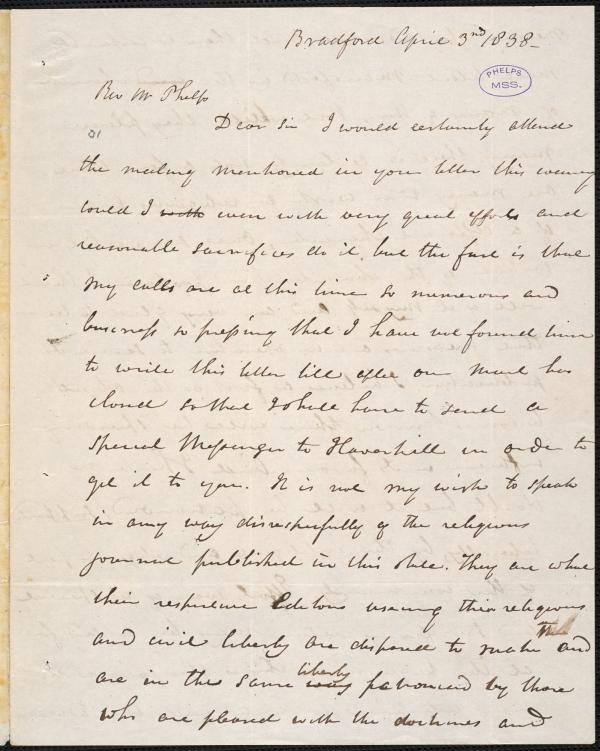 Bradford April 3rd 1838-
PHELPS
MSS.
Rev Mr Phelps
Dear Sir I would certainly attend
10
the meeting mentioned in your letter this evening
could I with even with very great efforts and
reasonable sacrifices do it, but the fact is that
my calls are at this time so numerous and
business so pressing that I have not found time
to write this letter till after our Mail has
closed so that I shall have to send a
special Messenger to Haverhill in order to
get it to you. It is not my wish to speak
in any way disrespectfully of the religious
journal published in this state. They are what
their respective Editors using their religious
and civil liberty are disposed to make them and
are in the same way liberty patronized by those
who are pleased with the doctrines and